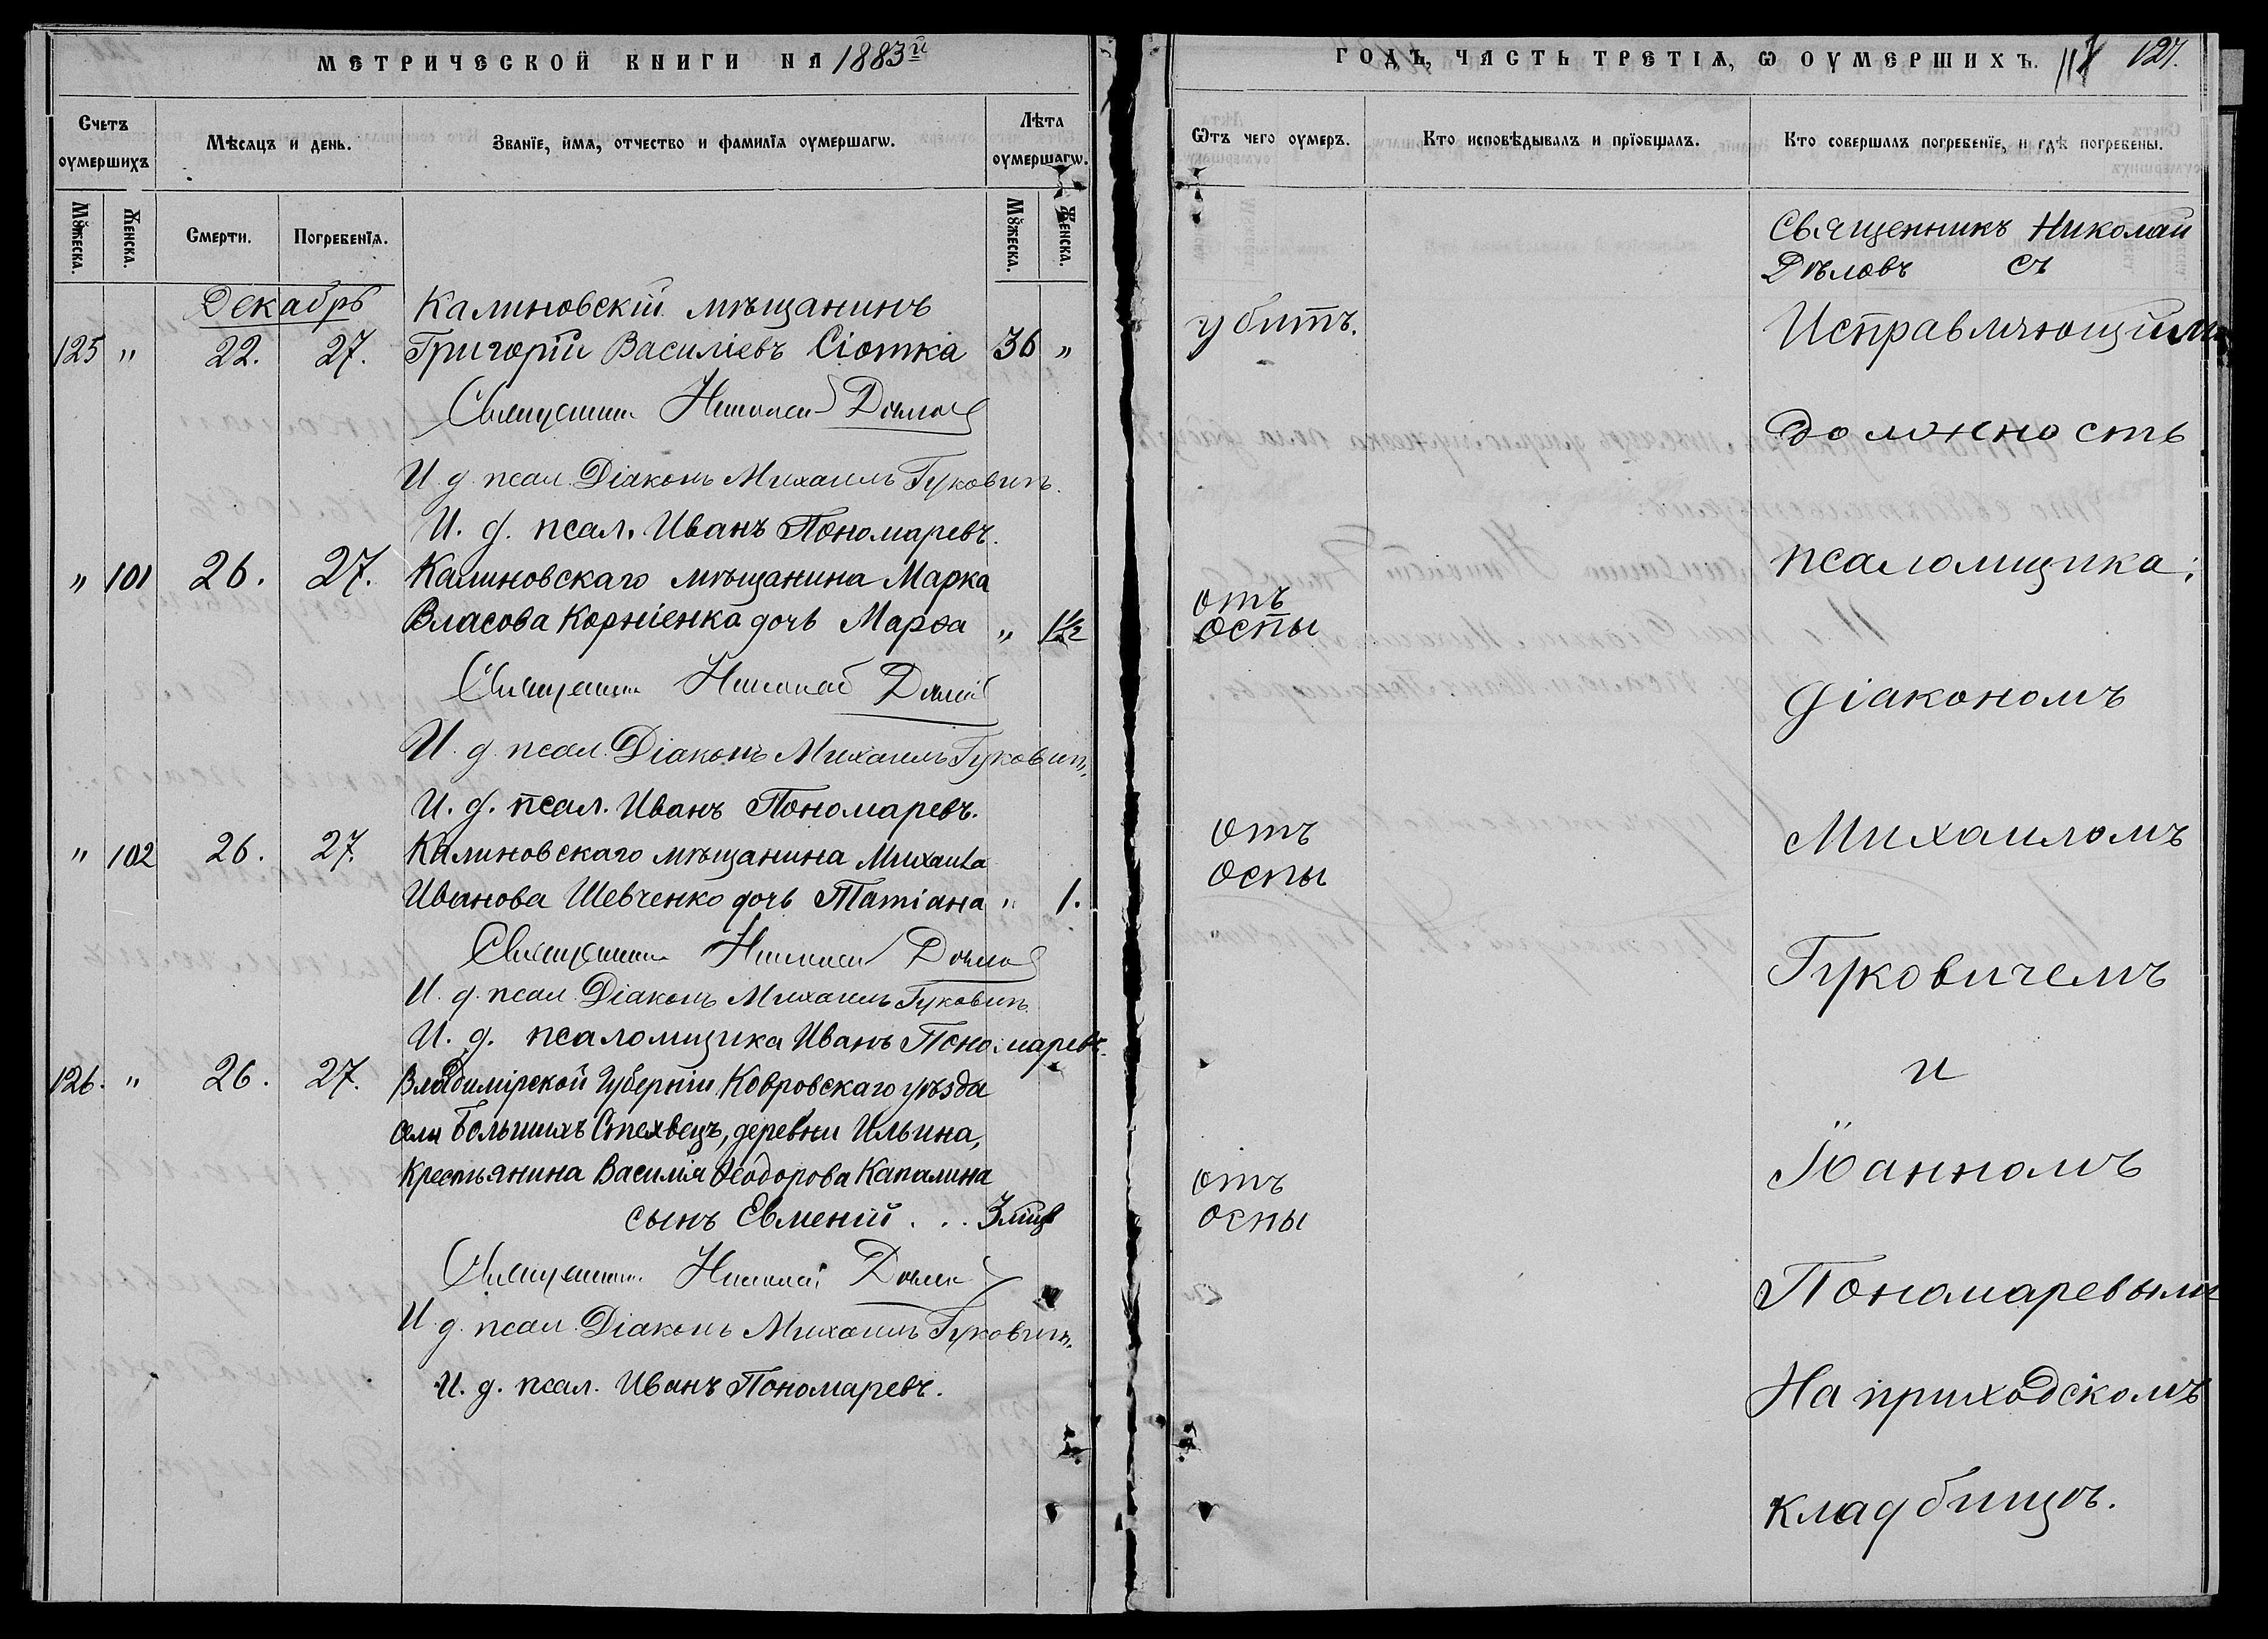 МЕТРИЧЕСКОЙ КНИГИ НА 1883й
Счетъ оумершихъ
Мѣсяцъ и день.
Званїе, имѧ, отчество и фамилїѧ оумершагѡ.
Лѣта оумершагѡ.
Мꙋжеска.
Женска.
Смерти.
Погребенїѧ.
Мꙋжеска.
Женска.
Декабрь
Калиновскій мѣщанинъ
125 " 22. 27. Григорій Василіевъ Сіотка 36 "
Священникъ Николай Дѣловъ
И. д. псал. Діаконъ Михаилъ Гуковичъ.
И. д. псал. Иванъ Пономаревъ.
" 101 26. 27. Калиновскаго мѣщанина Марка
Власова Корніенка дочь Марѳа " 1½
Священникъ Николай Дѣловъ
И. д. псал. Діаконъ Михаилъ Гуковичъ.
И. д. псал. Иванъ Пономаревъ.
" 102 26. 27. Калиновскаго мѣщанина Михаила
Иванова Шевченко дочь Татіана " 1.
Священникъ Николай Дѣловъ
И. д. псал. Діаконъ Михаилъ Гуковичъ
И. д. псаломщика Иванъ Пономаревъ.
126. " 26. 27. Владимірской Губерніи Ковровскаго уѣзда
села Большихъ Стехвецъ, деревни Ильина,
Крестьянина Василія Ѳеодорова Капалина
сынъ Евменій . . . 3 мѣц
Священникъ Николай Дѣловъ
И. д. псал. Діаконъ Михаилъ Гуковичъ.
И. д. псал. Иванъ Пономаревъ.
ГОДЪ, ЧАСТЬ ТРЕТІѦ, Ѡ ОУМЕРШИХЪ. 127.
Ѿтъ чего оумеръ.
Кто исповѣдывалъ и прїобщалъ.
Кто совершалъ погребенїе, и гдѣ погребены.
убитъ.
отъ
оспы
отъ
оспы
отъ
оспы
Священникъ Николай
Дѣловъ съ
Исправляющими
должность
псаломщика:
діакономъ
Михаиломъ
Гуковичемъ
и
Іоанномъ
Пономаревымъ
На приходскомъ
кладбищѣ.